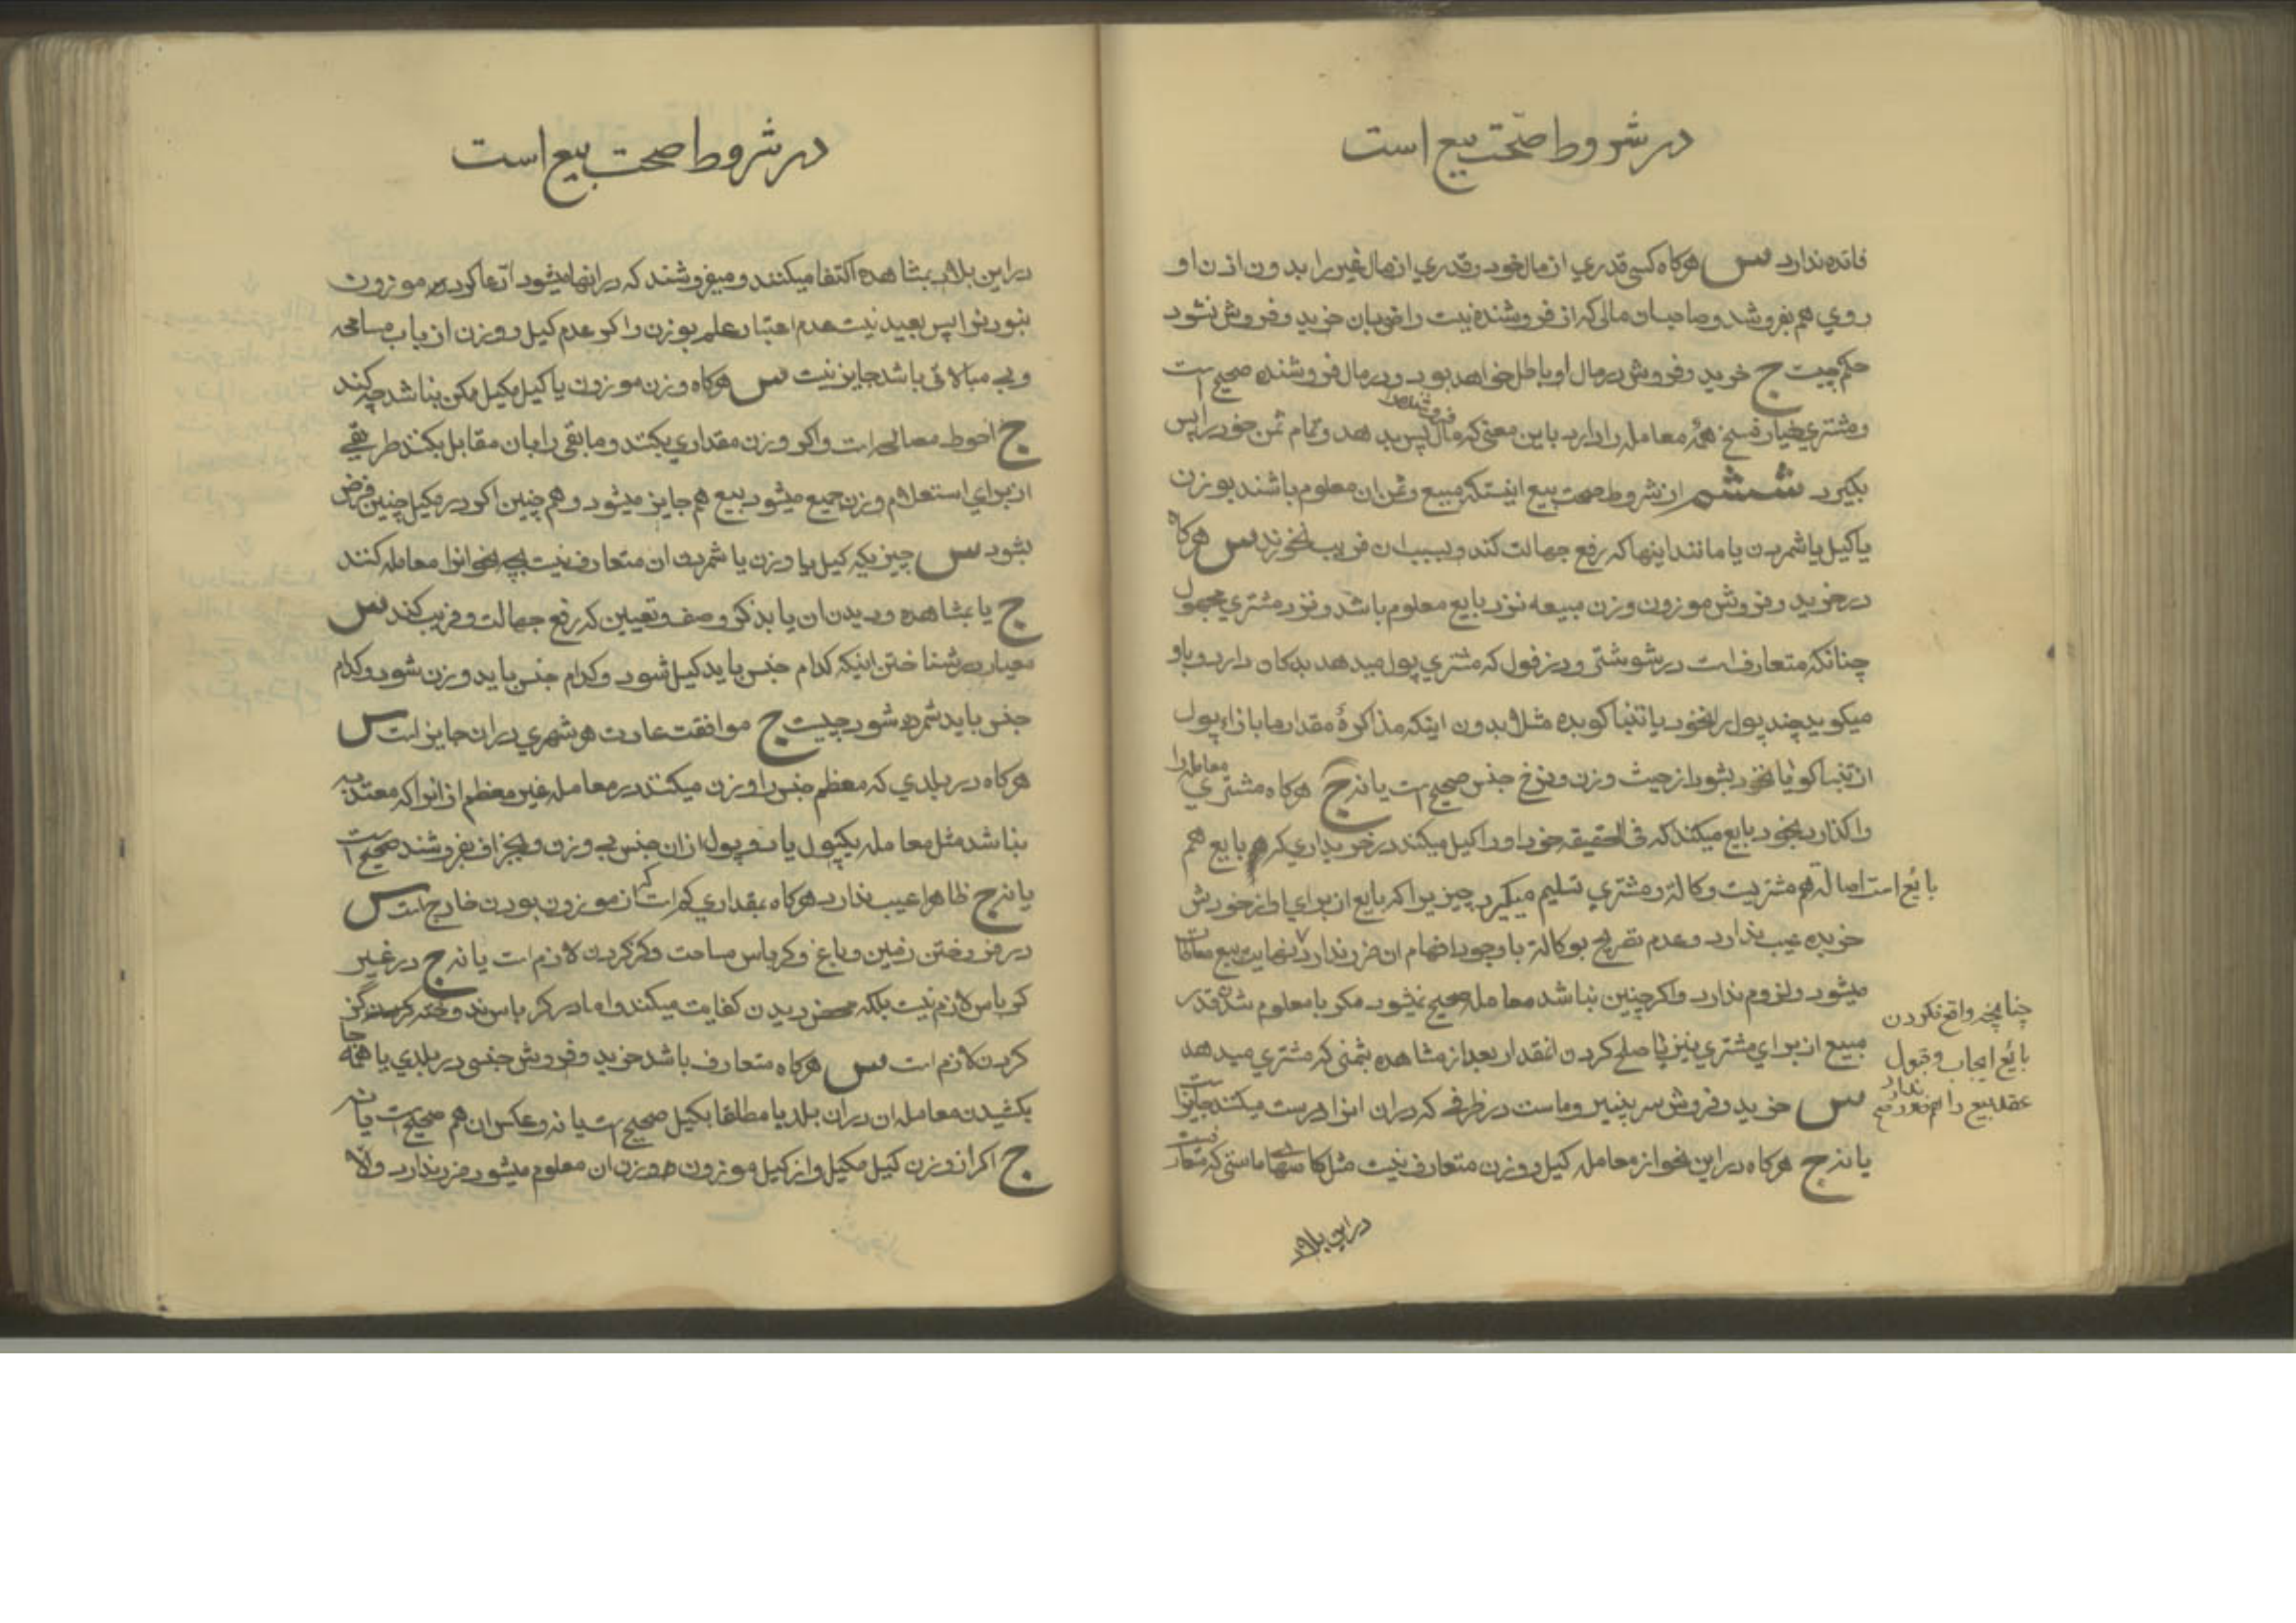 در شروط صحّت بیع است
فائده ندارد س هرکاه کسی قدری از مال خود و قدری از مال غیر را بدون اذن او
روی هم بفروشد و صاحبان مالی که از فروشنده نیست راضی بان خرید و فروش نشود
حکم چیست ج خرید و فروش در مال او باطل خواهد بود و در مال فروشنده صحیح است
و مشتری خیار فسخ همهٔ معامله را دارد باین معنی که مال فروشنده را پس بدهد و تمام ثمن خود را پس
بکیرد ششم از شروط صحت بیع اینستکه مبیع و ثمن ان معلوم باشند بوزن
یا کیل یا شمردن یا مانند اینها که رفع جهالت کند و بسبب ان فریب نخورند س هرکاه
در خرید و فروش موزون وزن مبیعه نزد بایع معلوم باشد و نزد مشتری مجهول
چنانکه متعارفست در شوشتر و دزفول که مشتری پول میدهد بدکان دارد و باو
میکوید چند پول را نخود یا تنباکو بده مثلا بدون اینکه مذاکرهٔ مقدار ما بازاء پول
از تنباکو یا نخود بشود از حیث وزن و نرخ جنس صحیح است یا نه ج هرکاه مشتری معامله را
واکذارد بخود بایع میکند که فی الحقیقه خود او را کیل میکند در خریداری که بایع هم
بائع است اصالة هم مشتریست وکالة و مشتری تسلیم میکیرد چیزیرا که بایع از برای او از خودش
خریده عیب ندارد و عدم تصریح بوکالة با وجود افهام ان ضرر ندارد نهایت بیع معاطات
میشود و لزوم ندارد و اکر چنین نباشد معامله صحیح نمیشود مکر با معلوم شدن قدر
مبیع از برای مشتری نیز یا صلح کردن انقدار بعد از مشاهده بثمنی که مشتری میدهد
س خرید و فروش سر پنیر و ماست در ظرفی که در ان انرا درست میکنند جایز است
یا نه ج هرکاه در این نحو از معامله کیل و وزن متعارف نیست مثل کاسهای ماستی که متعارفست
چنانچه واقع نکردن
بائع ایجاب و قبول
عقد بیع را هم ضرر ندارد
در این بلاد
در شروط صحت بیع است
در این بلاد بمشاهده اکتفا میکنند و میفروشند که در انها میشود ادّعا کرد موزون
نبودنرا پس بعید نیست عدم اعتبار علم بوزن و اکر عدم کیل و وزن از باب مسامحه
و بی مبالاتی باشد جایز نیست س هرکاه وزن موزون یا کیل مکیل ممکن نباشد چه کند
ج احوط مصالحه است و اکر وزن مقداری بکنند و مابقی را بان مقابل بکنند طریقی
از برای استعلام وزن جمیع میشود بیع هم جایز میشود و هم چنین اکر در مکیل چنین فرض
بشود س چیزیکه کیل یا وزن یا شمردن ان متعارف نیست بچه نحو انرا معامله کنند
ج یا بمشاهده و دیدن ان یا بذکر وصف و تعیین که رفع جهالت و فریب کند س
معیار در شناختن اینکه کدام جنس باید کیل شود و کدام جنس باید وزن شود و کدام
جنس باید شمرده شود چیست ج موافقت عادت هر شهری در ان جایز است س
هرکاه در بلدی که معظم جنس را وزن میکنند در معامله غیر معظم از انرا که معتد به
نباشد مثل معامله یکپول یا دو پول از ان جنس بی وزن و بجزاف بفروشند صحیح است
یا نه ج ظاهرا عیب ندارد هرکاه بمقداری کم است که از موزون بودن خارج است س
در فروختن زمین و باغ و کرباس مساحت و کز کردن لازم است یا نه ج در غیر
کرباس لازم نیست بلکه محض دیدن کفایت میکند و اما در کرباس ندوخته کز
کردن لازم است س هرکاه متعارف باشد خرید و فروش جنسی در بلدی یا همه جا
بکشیدن معامله ان در ان بلد یا مطلقا بکیل صحیح است یا نه و عکس ان هم صحیح است یا نه
ج اکر از وزن کیل مکیل و از کیل موزون وزن ان معلوم میشود ضرر ندارد و الّا